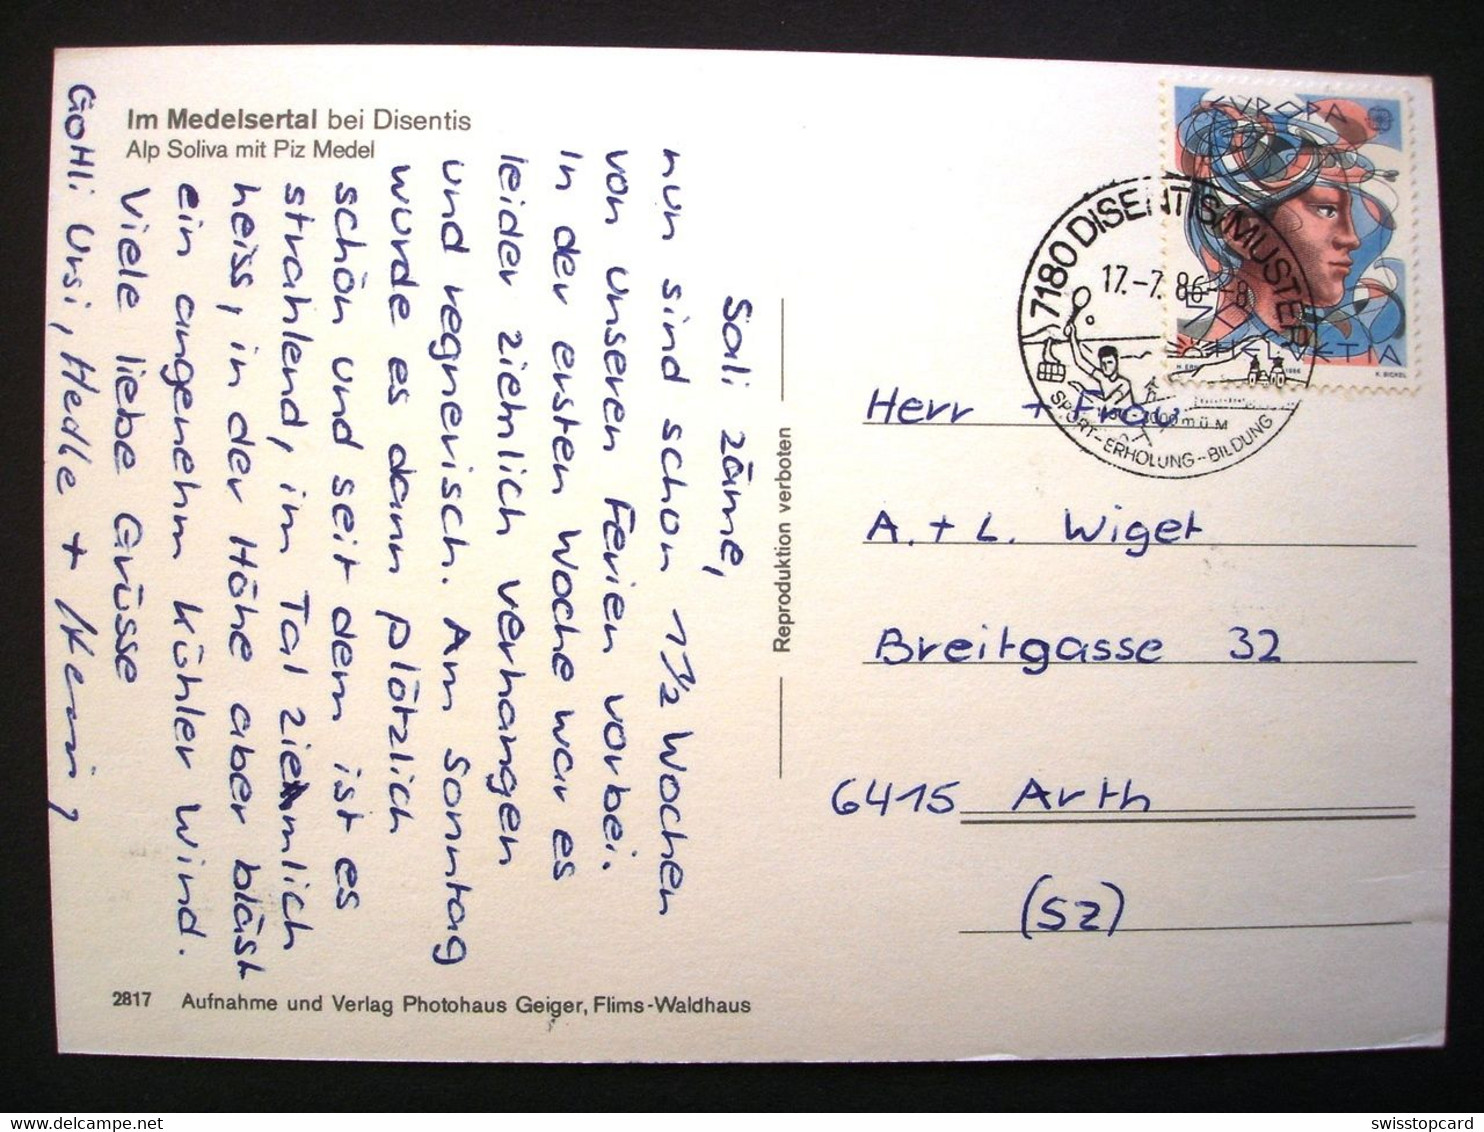 Im Medelsertal bei Disentis
Alp Soliva mit Piz Medel
Sali zäme,
nun sind schon 1 1/2 Wochen
von unseren Ferien vorbei.
In der ersten Woche war es
leider ziehmlich verhangen
und regnerisch. Am Sonntag
wurde es dann plötzlich
schön und seit dem ist es
strahlend, im Tal ziemlich
heiss, in der Höhe aber bläst
ein angenehm kühler Wind.
Viele liebe Grüsse
Ursi, +
2817 Aufnahme und Verlag Photohaus Geiger, Flims-Waldhaus
Reproduktion verboten
EUROPA
HELVETIA
1986
K. BICKEL
7180 DISENTIS/MUSTER
17.-7.86--8
2000 m.ü.M
SPORT-ERHOLUNG-BILDUNG
Herr + Frau
A. + L. Wiget
Breitgasse 32
6415 Arth
(SZ)
delcampe.net
swisstopcard